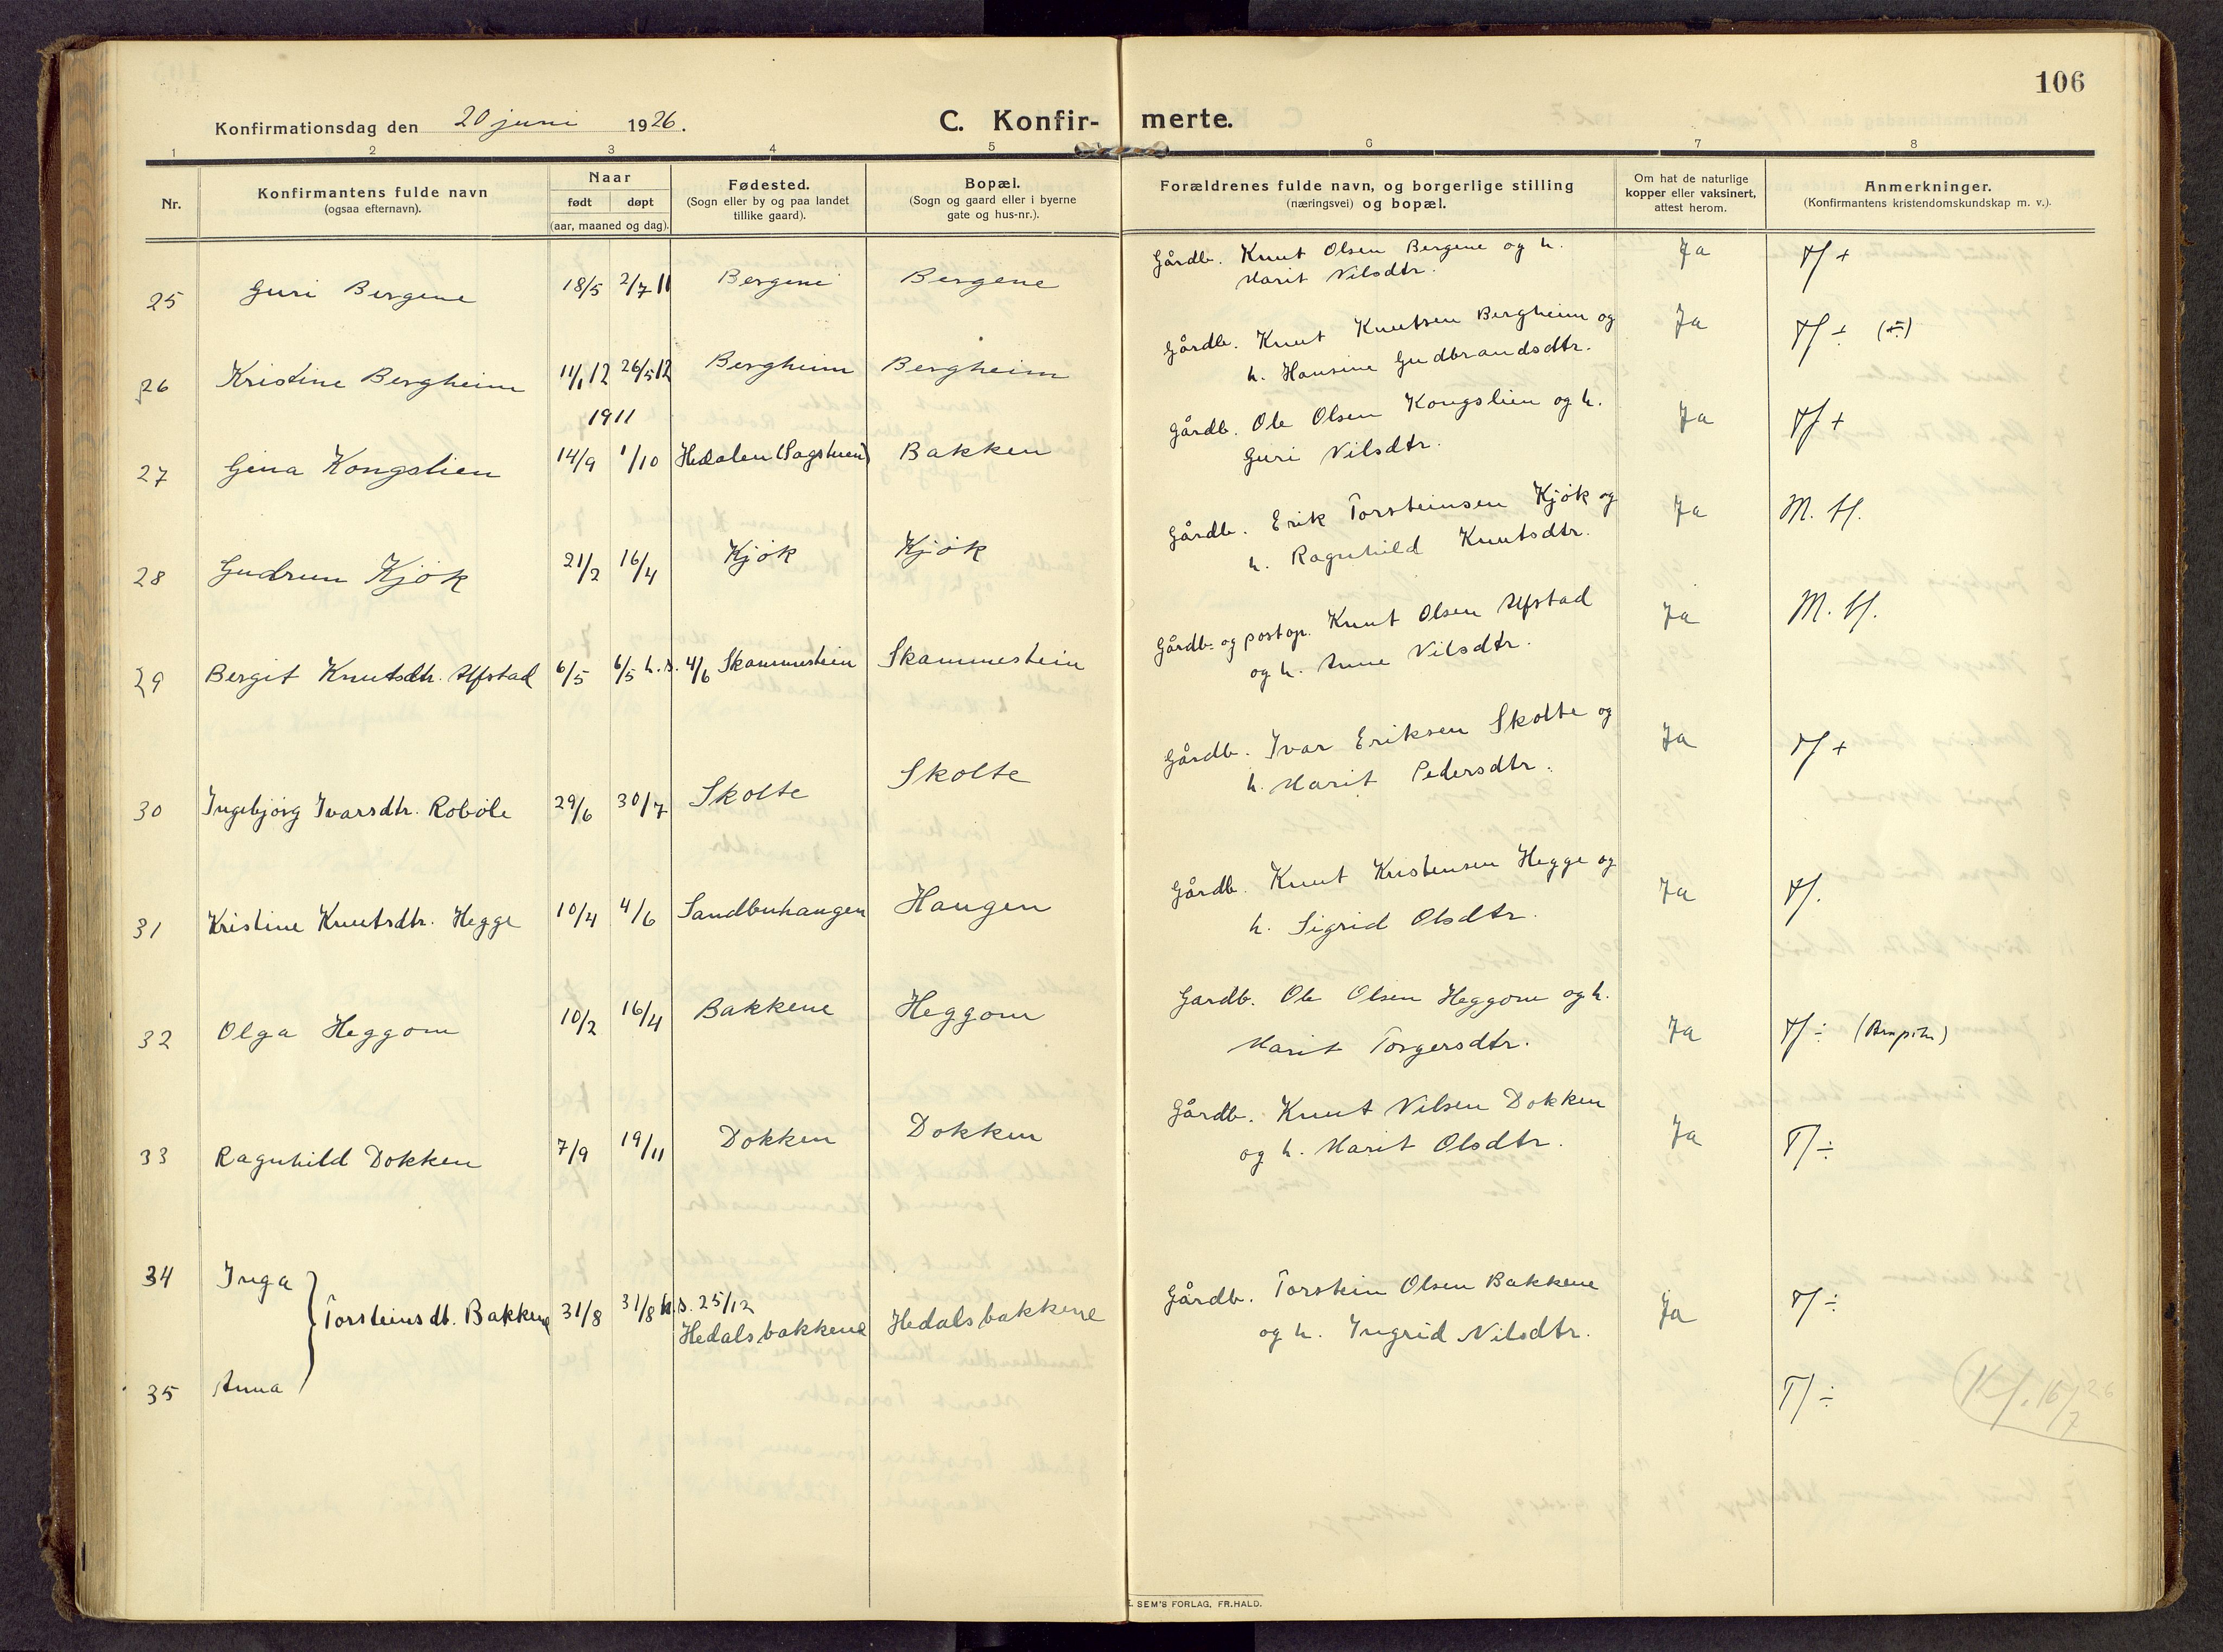 106
Konfirmationsdag den 20 juni 1926.
C. Konfir- merte.
1 2 3 4 5 6 7 8
Nr.
Konfirmantens fulde navn
(ogsaa efternavn).
Naar
født døpt
(aar, maaned og dag).
Fødested.
(Sogn eller by og paa landet
tillike gaard).
Bopæl.
(Sogn og gaard eller i byerne
gate og hus-nr.).
Forældrenes fulde navn, og borgerlige stilling
(næringsvei) og bopæl.
Om hat de naturlige
kopper eller vaksinert,
attest herom.
Anmerkninger.
(Konfirmantens kristendomskundskap m. v.).
25 Guri Bergene 18/5 2/7 11 Bergene Bergene Gårdb. Knut Olsen Bergene og h. Ja
Marit Nilsdtr.
26 Kristine Bergheim 11/1 12 26/5 12 Bergheim Bergheim Gårdb. Knut Knutsen Bergheim og Ja
h. Hansine Gudbrandsdtr.
1911
27 Gina Kongslien 14/9 1/10 Hedalen (Sagstuen) Bakken Gårdb. Ole Olsen Kongslien og h. Ja
Guri Nilsdtr.
28 Gudrun Kjøk 21/2 16/4 Kjøk Kjøk Gårdb. Erik Torsteinsen Kjøk og Ja
h. Ragnhild Knutsdtr.
29 Bergit Knutsdtr. Ufstad 6/5 6/5 h.s. 4/6 Skammestein Skammestein Gårdb. og postop. Knut Olsen Ufstad Ja
og h. Anne Nilsdtr.
30 Ingebjørg Ivarsdtr. Robøle 29/6 30/7 Skolte Skolte Gårdb. Ivar Eriksen Skolte og Ja
h. Marit Pedersdtr.
31 Kristine Knutsdtr. Hegge 10/4 4/6 Sandbuhaugen Haugen Gårdb. Knut Kristensen Hegge og Ja
h. Sigrid Olsdtr.
32 Olga Heggom 10/2 16/4 Bakkene Heggom Gardb. Ole Olsen Heggom og h. Ja
Marit Torgersdtr.
33 Ragnhild Dokken 7/9 19/11 Dokken Dokken Gårdb. Knut Nilsen Dokken Ja T/ ÷
og h. Marit Olsdtr.
34 Inga
Torsteinsdt. Bakkene 31/8 31/8 h.s. 25/12
Hedalsbakkene Hedalsbakkene Gårdb. Torstein Olsen Bakkene Ja
og h. Ingrid Nilsdtr.
35 Anna T/ ÷
SEM'S FORLAG, FR.HALD.